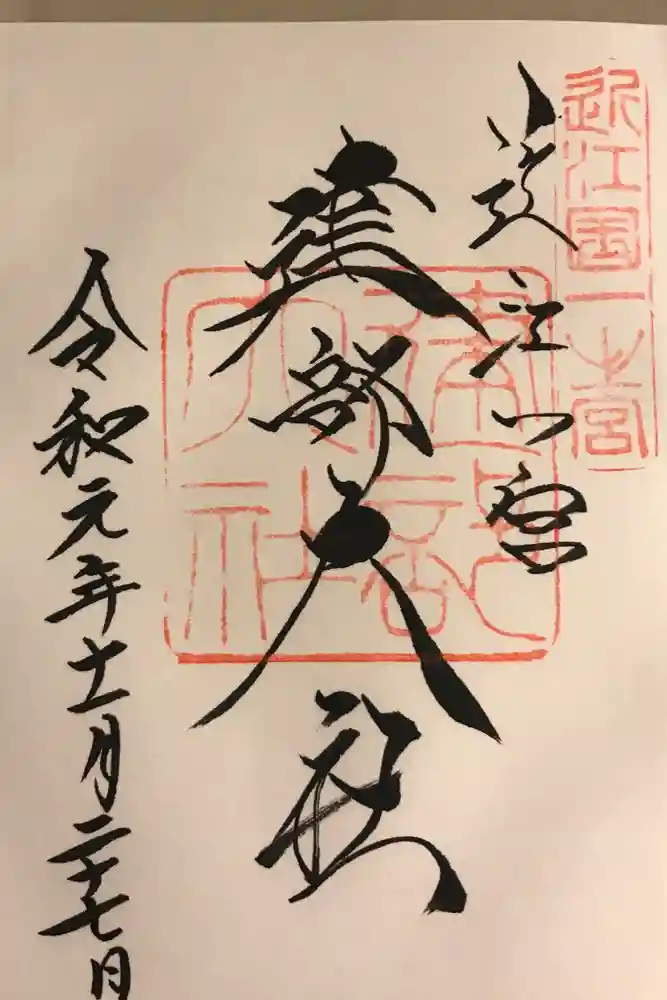 近江國一之宮
近江一宮
建部大社
建部大社
令和元年十一月二十七日